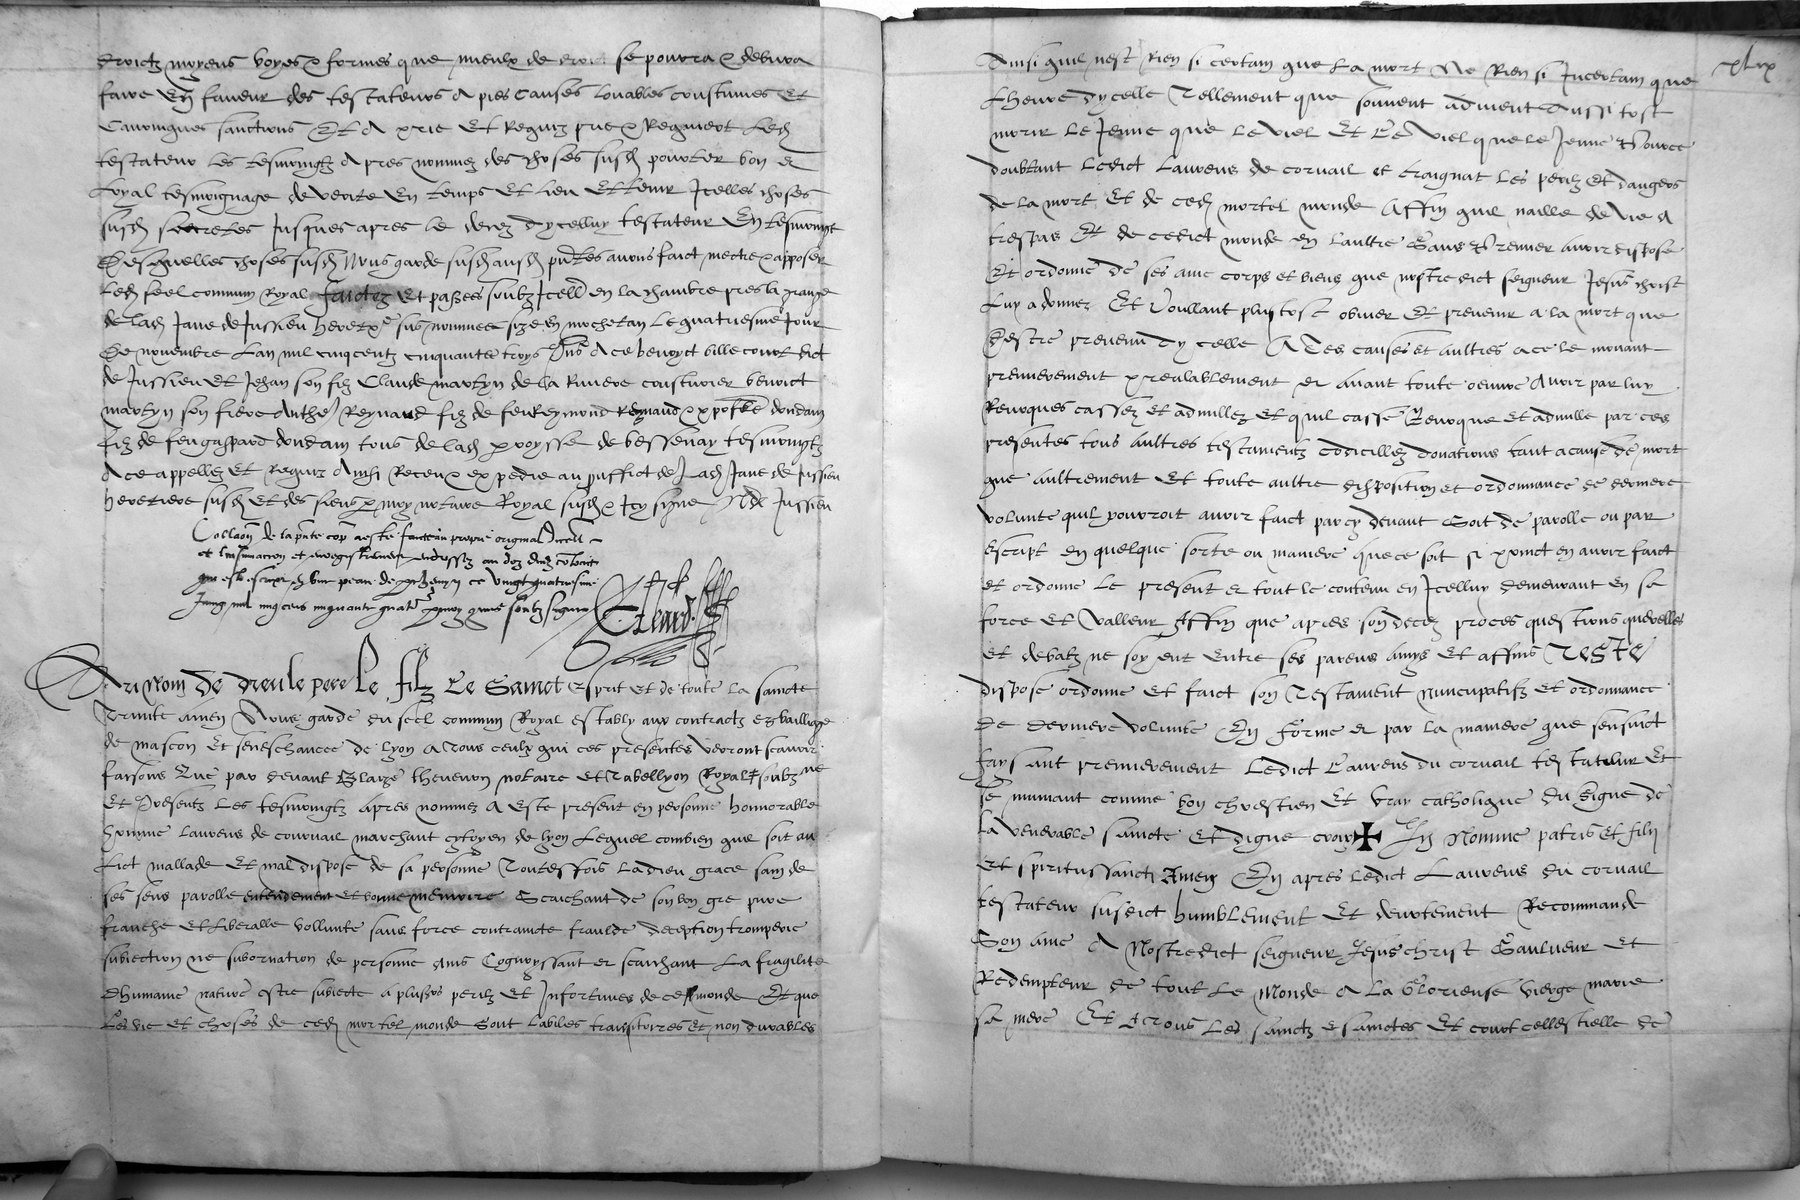 droictz moyens voyes & formes que mieulx de droict se pourra & debvra
faire En faveur des testateurs A pies causes louables coustumes Et
Canoniques sanctions Et A prie Et Requiz prie & Requiert Led
testateur les tesmoingtz Apres nommez des choses susd pourter bon et
Loyal tesmoignage de verite En temps Et lieu Et tenir Icelles choses
susd secretes Jusques apres le decez dycelluy testateur En tesmoingt
Desquelles choses susd Nous garde susd ausd pntes avons faict mectre & apposer
Led seel commun Royal faictes Et passees soubz Icell en la chambre pres la grange
de lad Jane de Jussieu herete sus nommee size En mochetan le quatriesme Jour
De novembre Lan mil cinq centz cinquante troys Pns A ce benoyct villecourt dict
de Jussieu Et Jehan son filz Claude martyn de la Riviere cousturier benoict
martyn son frere Anthe Reynaud filz de feu Reymond Reynaud & xpofle dondain
filz de feu gaspard dondain tous de lad parroysse de bessenay tesmoingtz
A ce appellez Et Requiz Ainsi Receu & expedie au prouffict de Lad Jane de Jussieu
heretiere susd Et des siens p moy notaire Royal susd & Icy signe N de Jussieu
Collaon de la pnte cop a este faicte au propre original Dicell
et Insinuacion et enregistrement
escript en une peau de parchemyn ce vingt quatriesme
Jung mil cinq cens cinquante quatre soubz signe
Au Nom de dieu le pere Le filz Le Sainct esprit et de toute la saincte
Trinite amen Nous garde du seel commun Royal estably aux contractz es bailliage
de mascon Et seneschaucee de lyon A Tous ceulx qui ces presentes verront scavoir
faisons Que par devant Glaize thevenon notaire Et Tabellyon Royal soubz ne
Et Presentz les tesmoingtz apres nommez A este present en personne honnorable
homme Laurens de corvail marchant cytoyen de lyon Lequel combien quil soit au
Lict mallade Et mal dispose de sa personne Touteffois La dieu grace sain de
ses sens parolle entendement et bonne memoire Scaichant de son bon gre pure
franche Et liberalle vollunte sans force contraincte fraulde deception tromperie
subiection ne subornation de personne Ains Cognoyssant et scaichant La fragilite
Dhumaine nature estre subiecte a plusrs perilz Et Infortunes de ce monde Et que
Les vie Et choses de ced mortel monde Sont Labiles transitoires Et non durables
xlix
Ainsi quil nest Rien si certain que La mort Ne Rien si Incertain que
Lheure dycelle Tellement que souvent advient Aussi tost
morir Le Jeune que Le viel Et Le viel que le Jeune Pource
doubtant Ledict Laurens de corvail et craignat Les perilz Et dangers
de la mort Et de ced mortel monde Affin quil naille de vie A
trespas Et de cedict monde en Laultre Sans Premier avoir dispose
Et ordonne de ses ame corps et biens que nostredict seigneur Jesus christ
Luy a donnez Et Voullant plustost obvier Et prevenir a la mort que
Destre prevenu Dycelle A Ces causes et aultres a ce le mouant
premierement & preallablement et Avant toute oeuvre Avoir par luy
Revoques cassez et adnullez Et quil casse Revoque Et adnulle par ces
presentes tous Aultres testamentz Codicillez donations tant a cause de mort
que aultrement Et toute aultre disposition et ordonnance de derniere
volunte quil pourroit avoir faict par cy devant Soit de parolle ou par
Escript en quelque sorte ou maniere que ce soit si point en avoir faict
et ordonne Le present et tout le contenu en Icelluy demeurant En sa
force et Valleur Affin que apres son decez proces questions querelles
et debatz ne soyent Entre ses parens amys Et affins Teste
dispose ordonne Et faict son Testament nuncupatifz et ordonnance
De derniere volunte En Forme et par La maniere que sensuict
faysant premierement Ledict Laurens du corvail testateur Et
se munnant comme bon chrestien Et Vray catholique du Signe de
La venerable saincte Et digne croix ✠ In Nomine patris et filii
et spiritussancti Amen En apres Ledict Laurens du corvail
testateur susdict humblement Et devotement Recommande
Son ame A Nostredict seigneur Jesus christ Saulveur Et
Redempteur De tout Le Monde A La Glorieuse vierge marie
sa mere Et A Tous Les sainctz & sainctes Et court cellestielle de